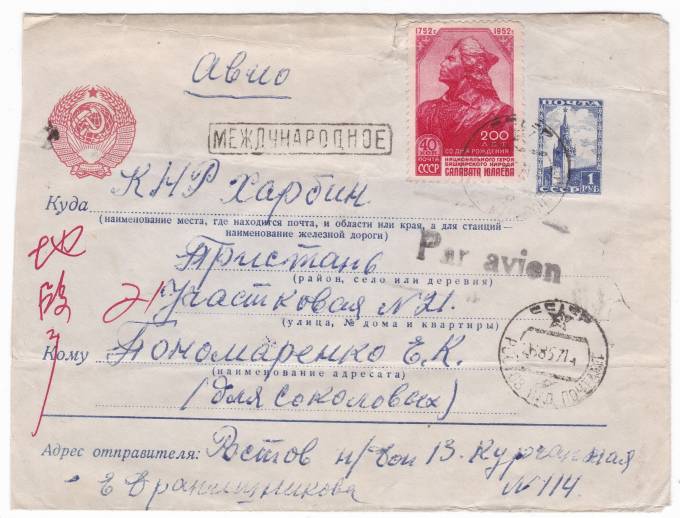 1752 г. 1952 г.
Авио
ПОЧТА
МЕЖДУНАРОДНОЕ
200
ЛЕТ
40 КОП
СО ДНЯ РОЖДЕНИЯ
ПОЧТА
СССР
НАЦИОНАЛЬНОГО ГЕРОЯ
БАШКИРСКОГО НАРОДА
САЛАВАТА ЮЛАЕВА
СССР
1
РУБ
КНР Харбин
Куда
(наименование места, где находится почта, и области или края, а для станций—
наименование железной дороги)
Пристань
Par avion
(район, село или деревня)
21
Участковая № 21.
(улица, № дома и квартиры)
Кому Пономаренко Е.К.
(наименование адресата)
(для Соколовых)
Адрес отправителя: Ростов н/Дон 13. Курганная
№ 114.